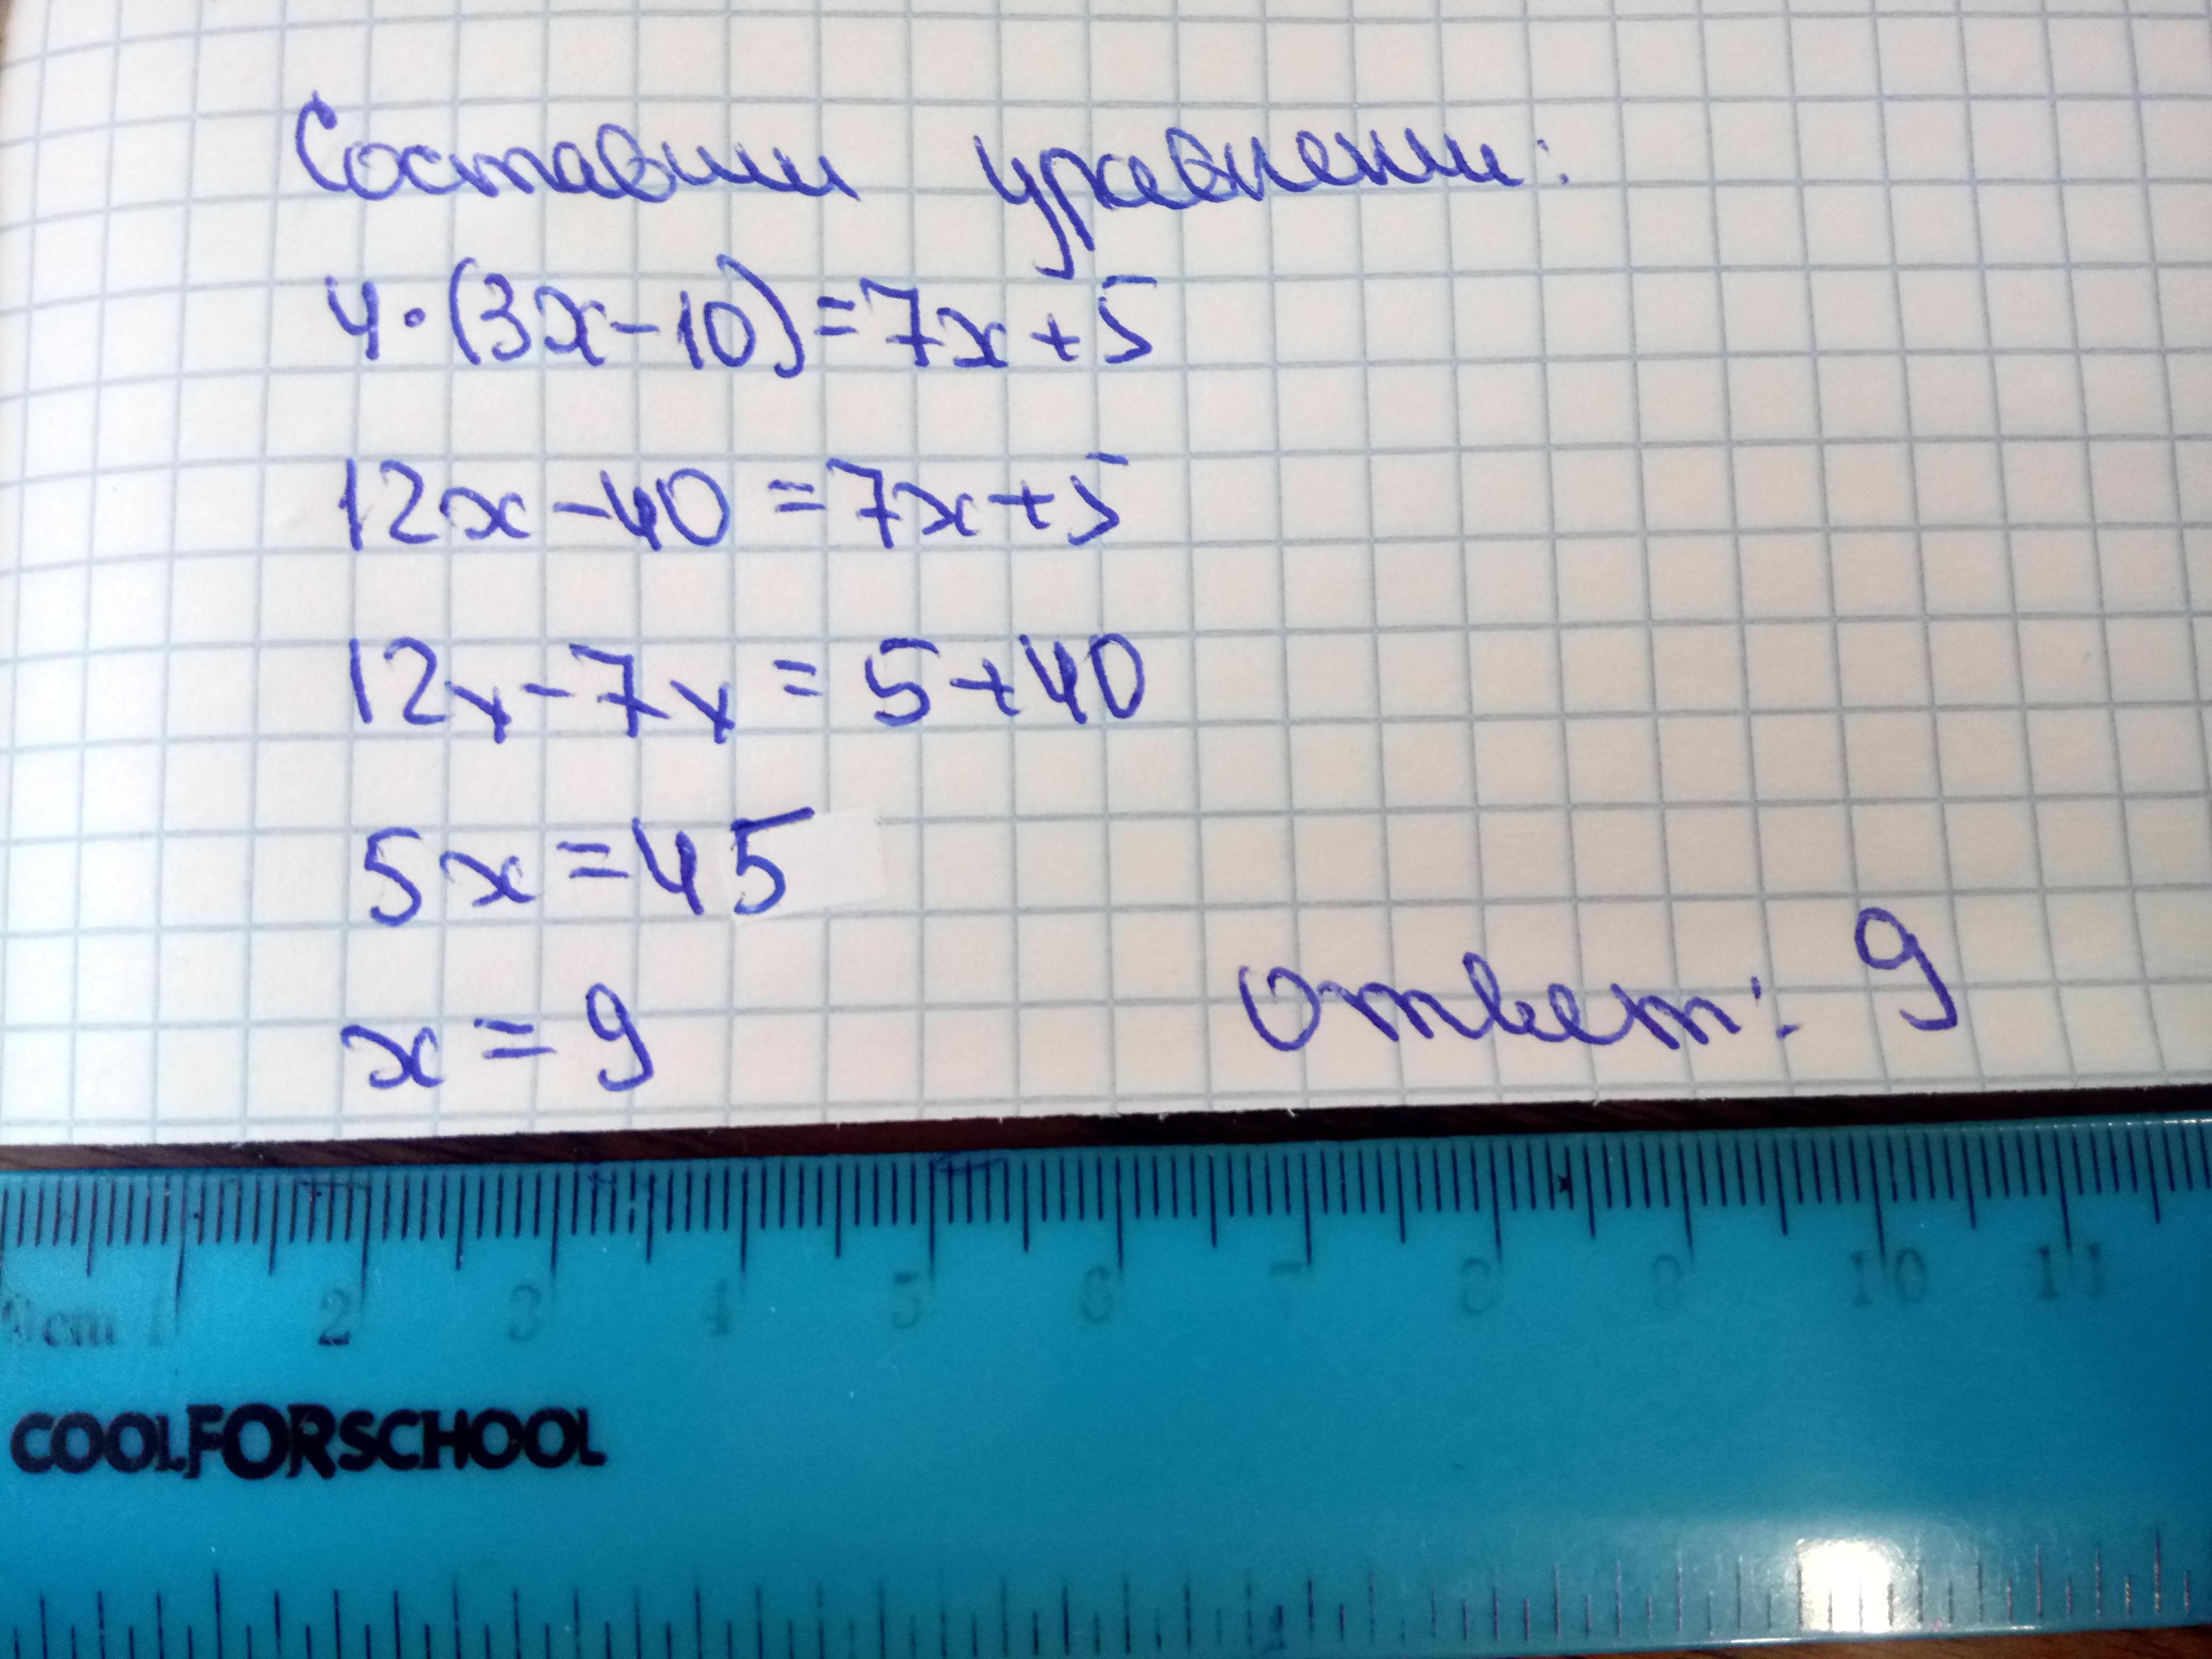 Составим уравнение:
4·(3x-10)=7x+5
12x-40=7x+5
12x-7x=5+40
5x=45
x=9
Ответ: 9
0cm 1 2 3 4 5 6 7 8 9 10 11
COOLFORSCHOOL